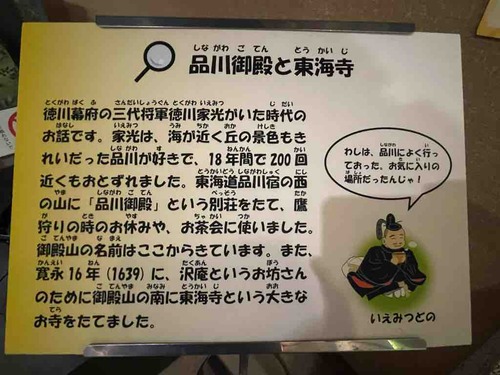 品川御殿と東海寺
徳川幕府の三代将軍徳川家光がいた時代の
お話です。家光は、海が近く丘の景色もき
れいだった品川が好きで、18年間で200回
近くもおとずれました。東海道品川宿の西
の山に「品川御殿」という別荘をたて、鷹
狩りの時のお休みや、お茶会に使いました。
御殿山の名前はここからきています。また、
寛永16年(1639)に、沢庵というお坊さん
のために御殿山の南に東海寺という大きな
お寺をたてました。
わしは、品川によく行っ
ておった、お気に入りの
場所だったんじゃ!
いえみつどの